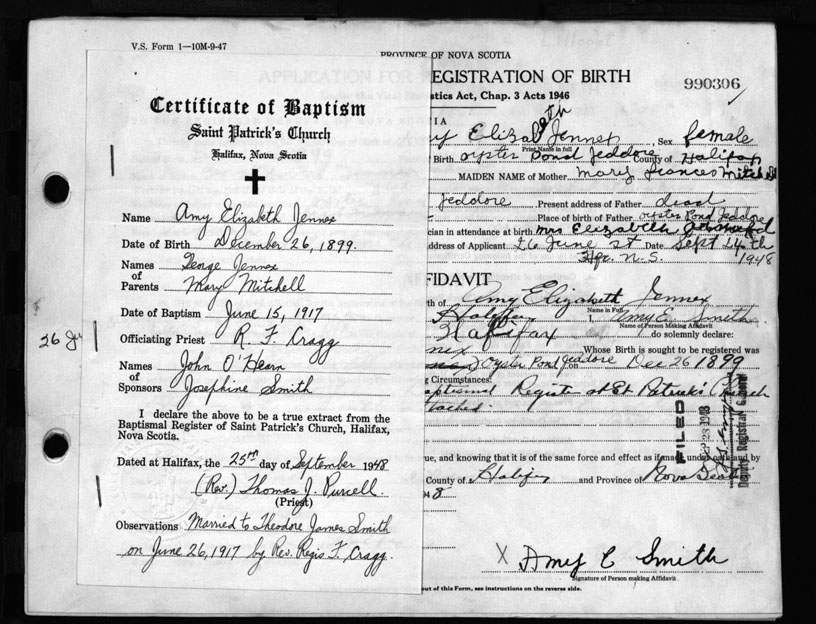 V.S. Form 1—10M-9-47
Certificate of Baptism
Saint Patrick's Church
Halifax, Nova Scotia
Name Amy Elizabeth Jennex
Date of Birth December 26, 1899.
Names of Parents George Jennex
Mary Mitchell
Date of Baptism June 15, 1917
Officiating Priest R. F. Cragg
Names of Sponsors John O'Hearn
Josephine Smith
I declare the above to be a true extract from the
Baptismal Register of Saint Patrick's Church, Halifax,
Nova Scotia.
Dated at Halifax, the 25th day of September 1948.
(Rev.) Thomas J. Purcell.
(Priest)
Observations Married to Theodore James Smith
on June 26, 1917 by Rev. Regis F. Cragg.
26
PROVINCE OF NOVA SCOTIA
EGISTRATION OF BIRTH
990306
stics Act, Chap. 3 Acts 1946
IA
y Elizabeth Jennex, Sex female
Print Name in full
Birth oyster Pond Jeddore County of Halifax
MAIDEN NAME of Mother Mary Frances Mitchell
Jeddore Present address of Father dead
Place of birth of Father oyster Pond Jeddore
cian in attendance at birth mrs Elizabeth
ddress of Applicant 26 June st Date Sept 24th
Hfx. N.S. 1948
FIDAVIT
th of Amy Elizabeth Jennex
Name in Full
Halifax I, Amy E. Smith
Name of Person Making Affidavit
Halifax do solemnly declare:
nex Whose Birth is sought to be registered was
Oyster Pond Jeddore on Dec 26 1899
g Circumstances:
aptismal Regist at St Patricks Church
tached.
FILED
Deputy Registrar General
rue, and knowing that it is of the same force and effect as if made under oath and by
County of Halifax and Province of Nova Scotia
48
X Amy E Smith
Signature of Person making Affidavit
out of this Form, see instructions on the reverse side.